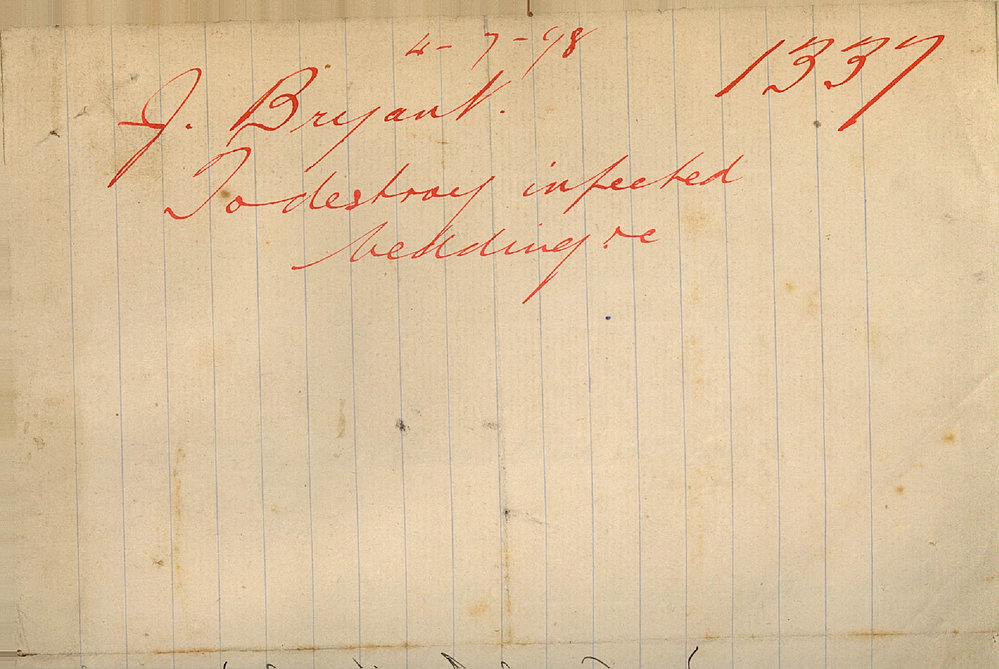 4-7-98
1337
J. Bryant.
To destroy infected
bedding &c